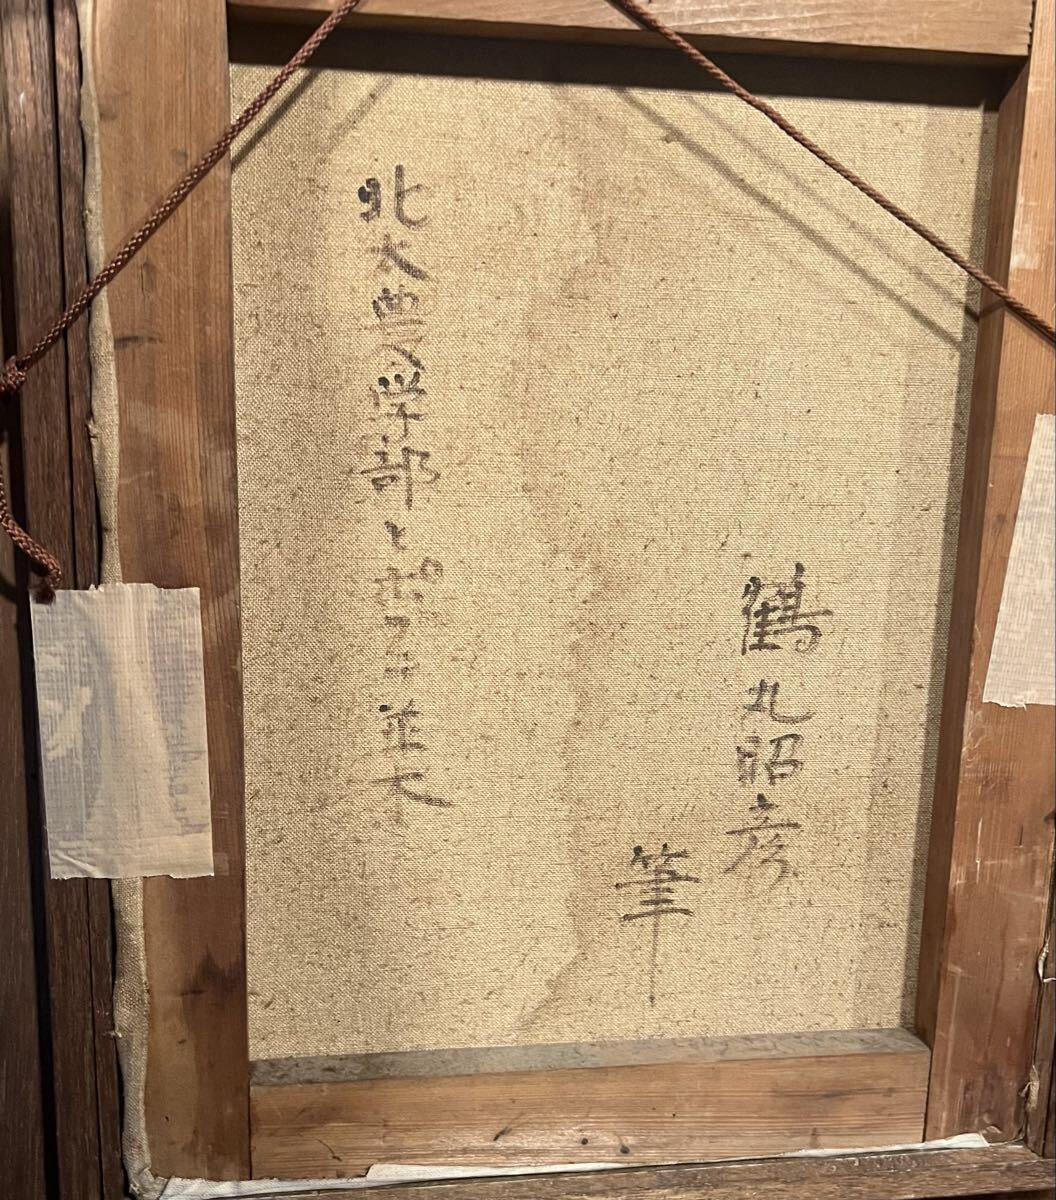 鶴丸昭彦
筆
北大農学部とポプラ並木